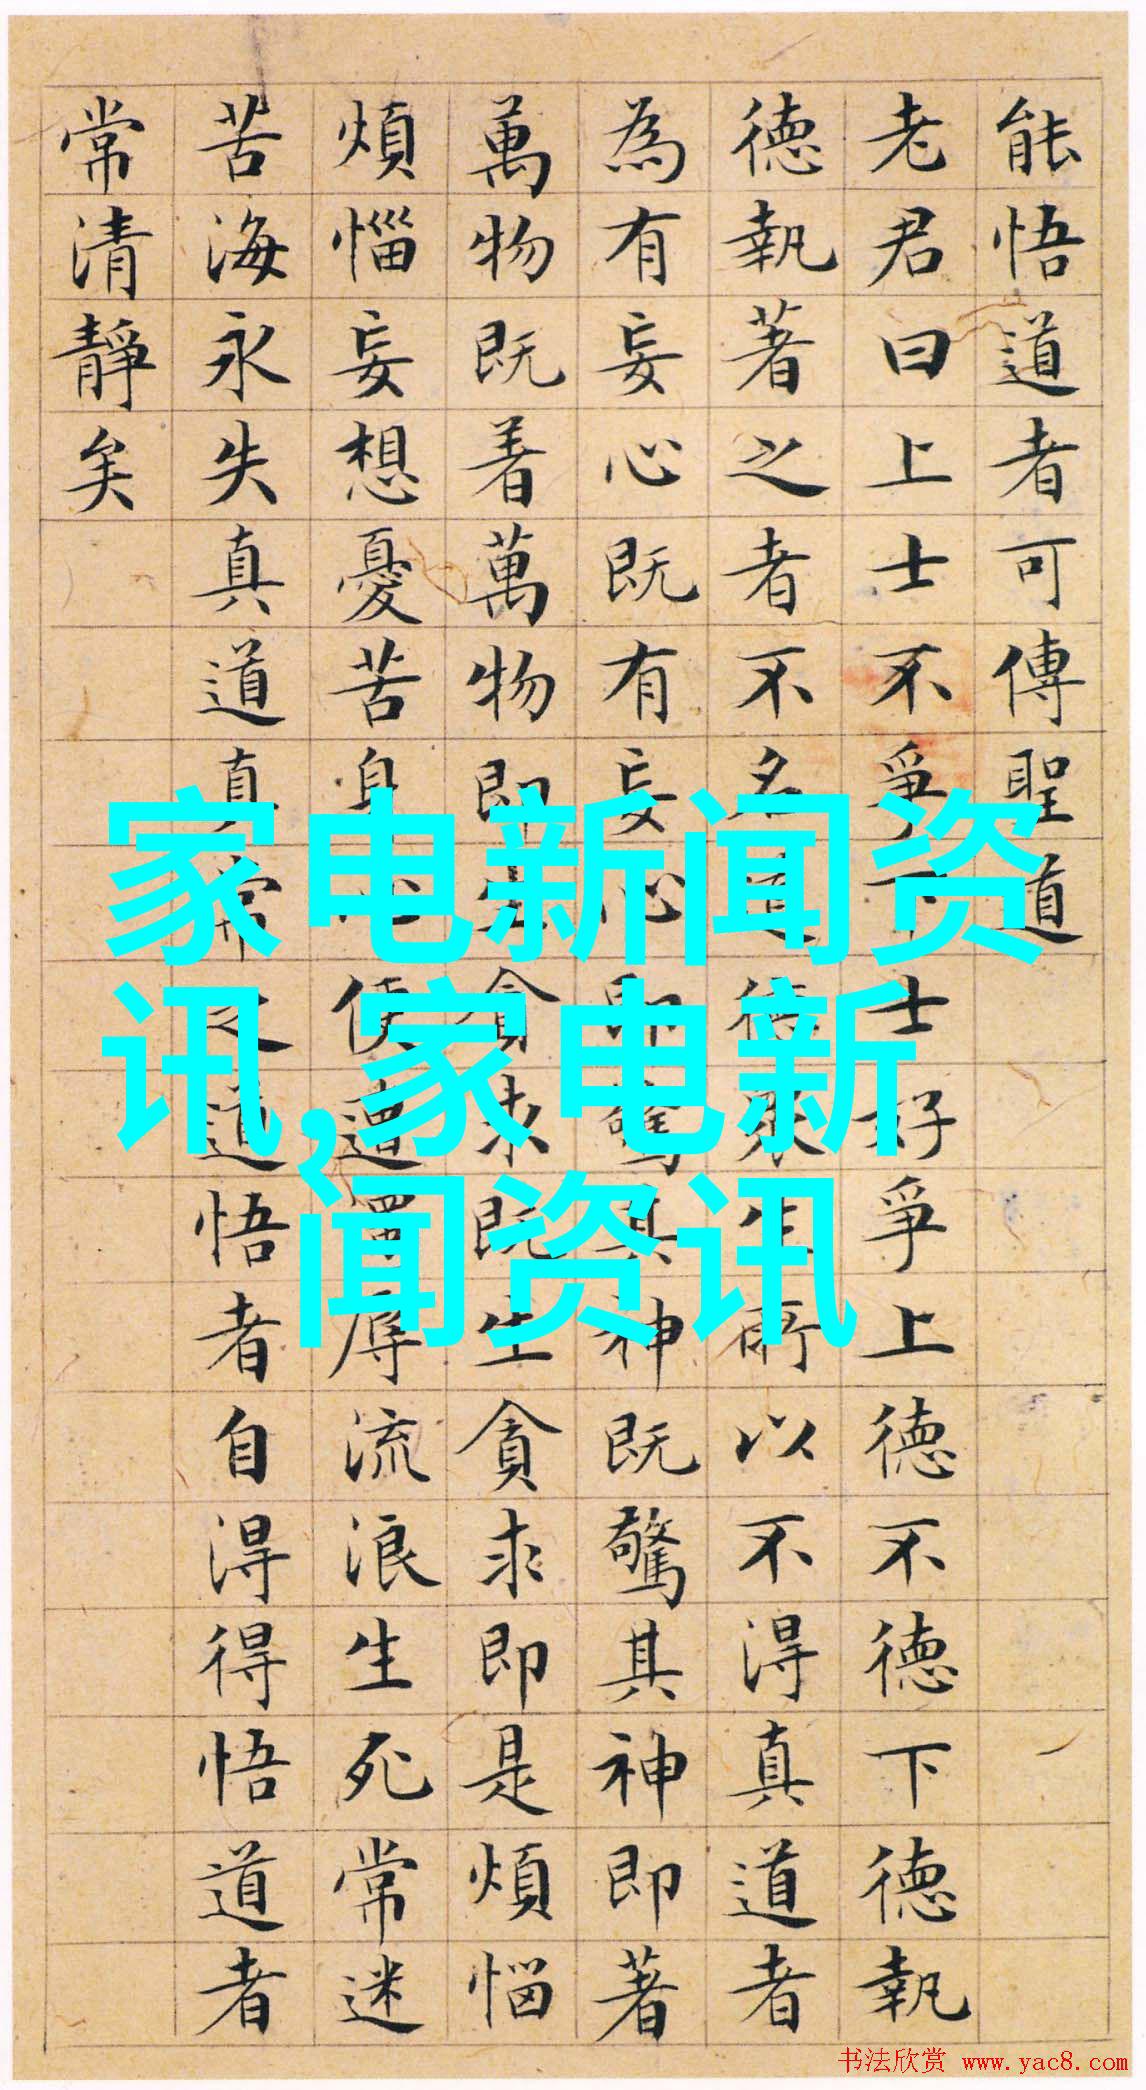 能悟道者可傳聖道
老君曰上士不爭下士好爭上德不德下德執
德執著之者不名道德衆生所以不得真道者
為有妄心既有妄心即驚其神既驚其神即著
萬物既着萬物即生貪求既生貪求即是煩惱
煩惱妄想憂苦身心便遭濁辱流浪生死常迷
苦海永失真道真常之道悟者自淂得悟道者
常清靜矣
家电新闻资
讯,家电新
闻资讯
书法欣赏 www.yac8.com